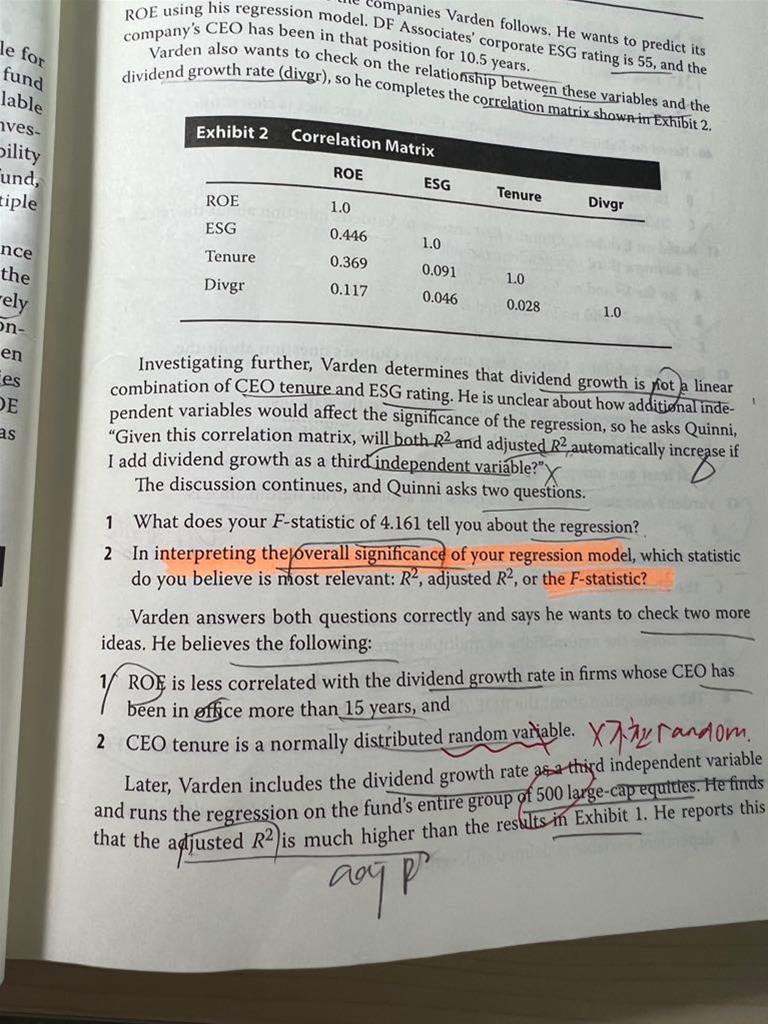 companies Varden follows. He wants to predict its
ROE using his regression model. DF Associates' corporate ESG rating is 55, and the
company's CEO has been in that position for 10.5 years.
Varden also wants to check on the relationship between these variables and the
dividend growth rate (divgr), so he completes the correlation matrix shown in Exhibit 2.
le for
fund
lable
nves-
bility
fund,
tiple
nce
the
vely
on-
en
ies
OE
as
Exhibit 2 Correlation Matrix
ROE ESG Tenure Divgr
ROE 1.0
ESG 0.446 1.0
Tenure 0.369 0.091 1.0
Divgr 0.117 0.046 0.028 1.0
Investigating further, Varden determines that dividend growth is not a linear
combination of CEO tenure and ESG rating. He is unclear about how additional inde-
pendent variables would affect the significance of the regression, so he asks Quinni,
"Given this correlation matrix, will both R², and adjusted R², automatically increase if
I add dividend growth as a third independent variable?" X
The discussion continues, and Quinni asks two questions.
1 What does your F-statistic of 4.161 tell you about the regression?
2 In interpreting the overall significance of your regression model, which statistic
do you believe is most relevant: R², adjusted R², or the F-statistic?
Varden answers both questions correctly and says he wants to check two more
ideas. He believes the following:
1 ROE is less correlated with the dividend growth rate in firms whose CEO has
been in office more than 15 years, and
2 CEO tenure is a normally distributed random variable. X random.
Later, Varden includes the dividend growth rate as a third independent variable
and runs the regression on the fund's entire group of 500 large-cap equities. He finds
that the adjusted R² is much higher than the results in Exhibit 1. He reports this